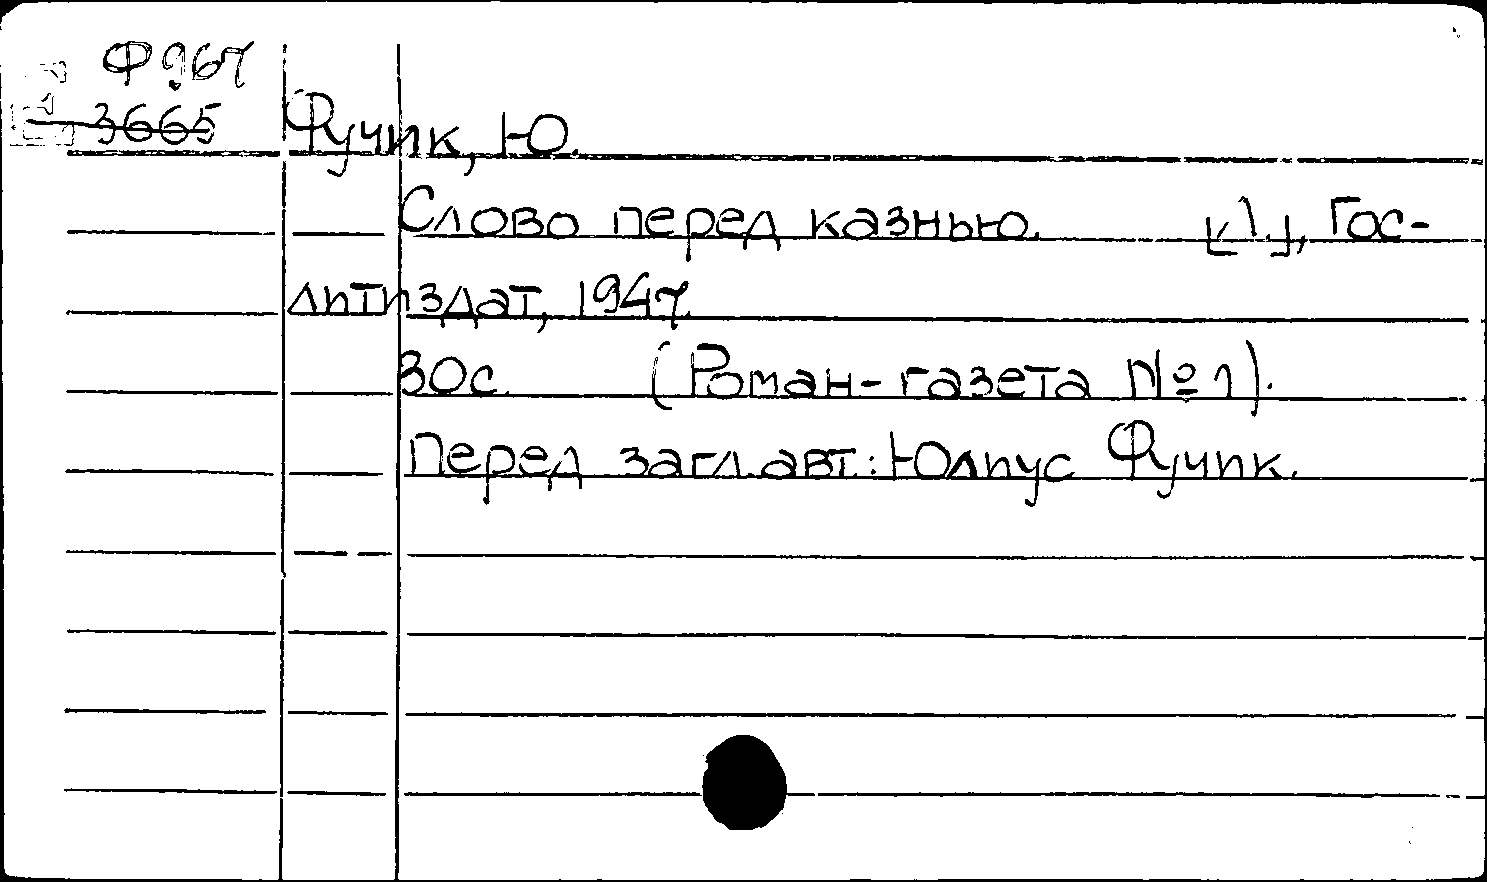 Ф 967
3665
Фучик, Ю.
Слово перед казнью. Гос-
литиздат, 1947.
30с. (Роман-газета №1).
Перед загл. авт.: Юлиус Фучик.